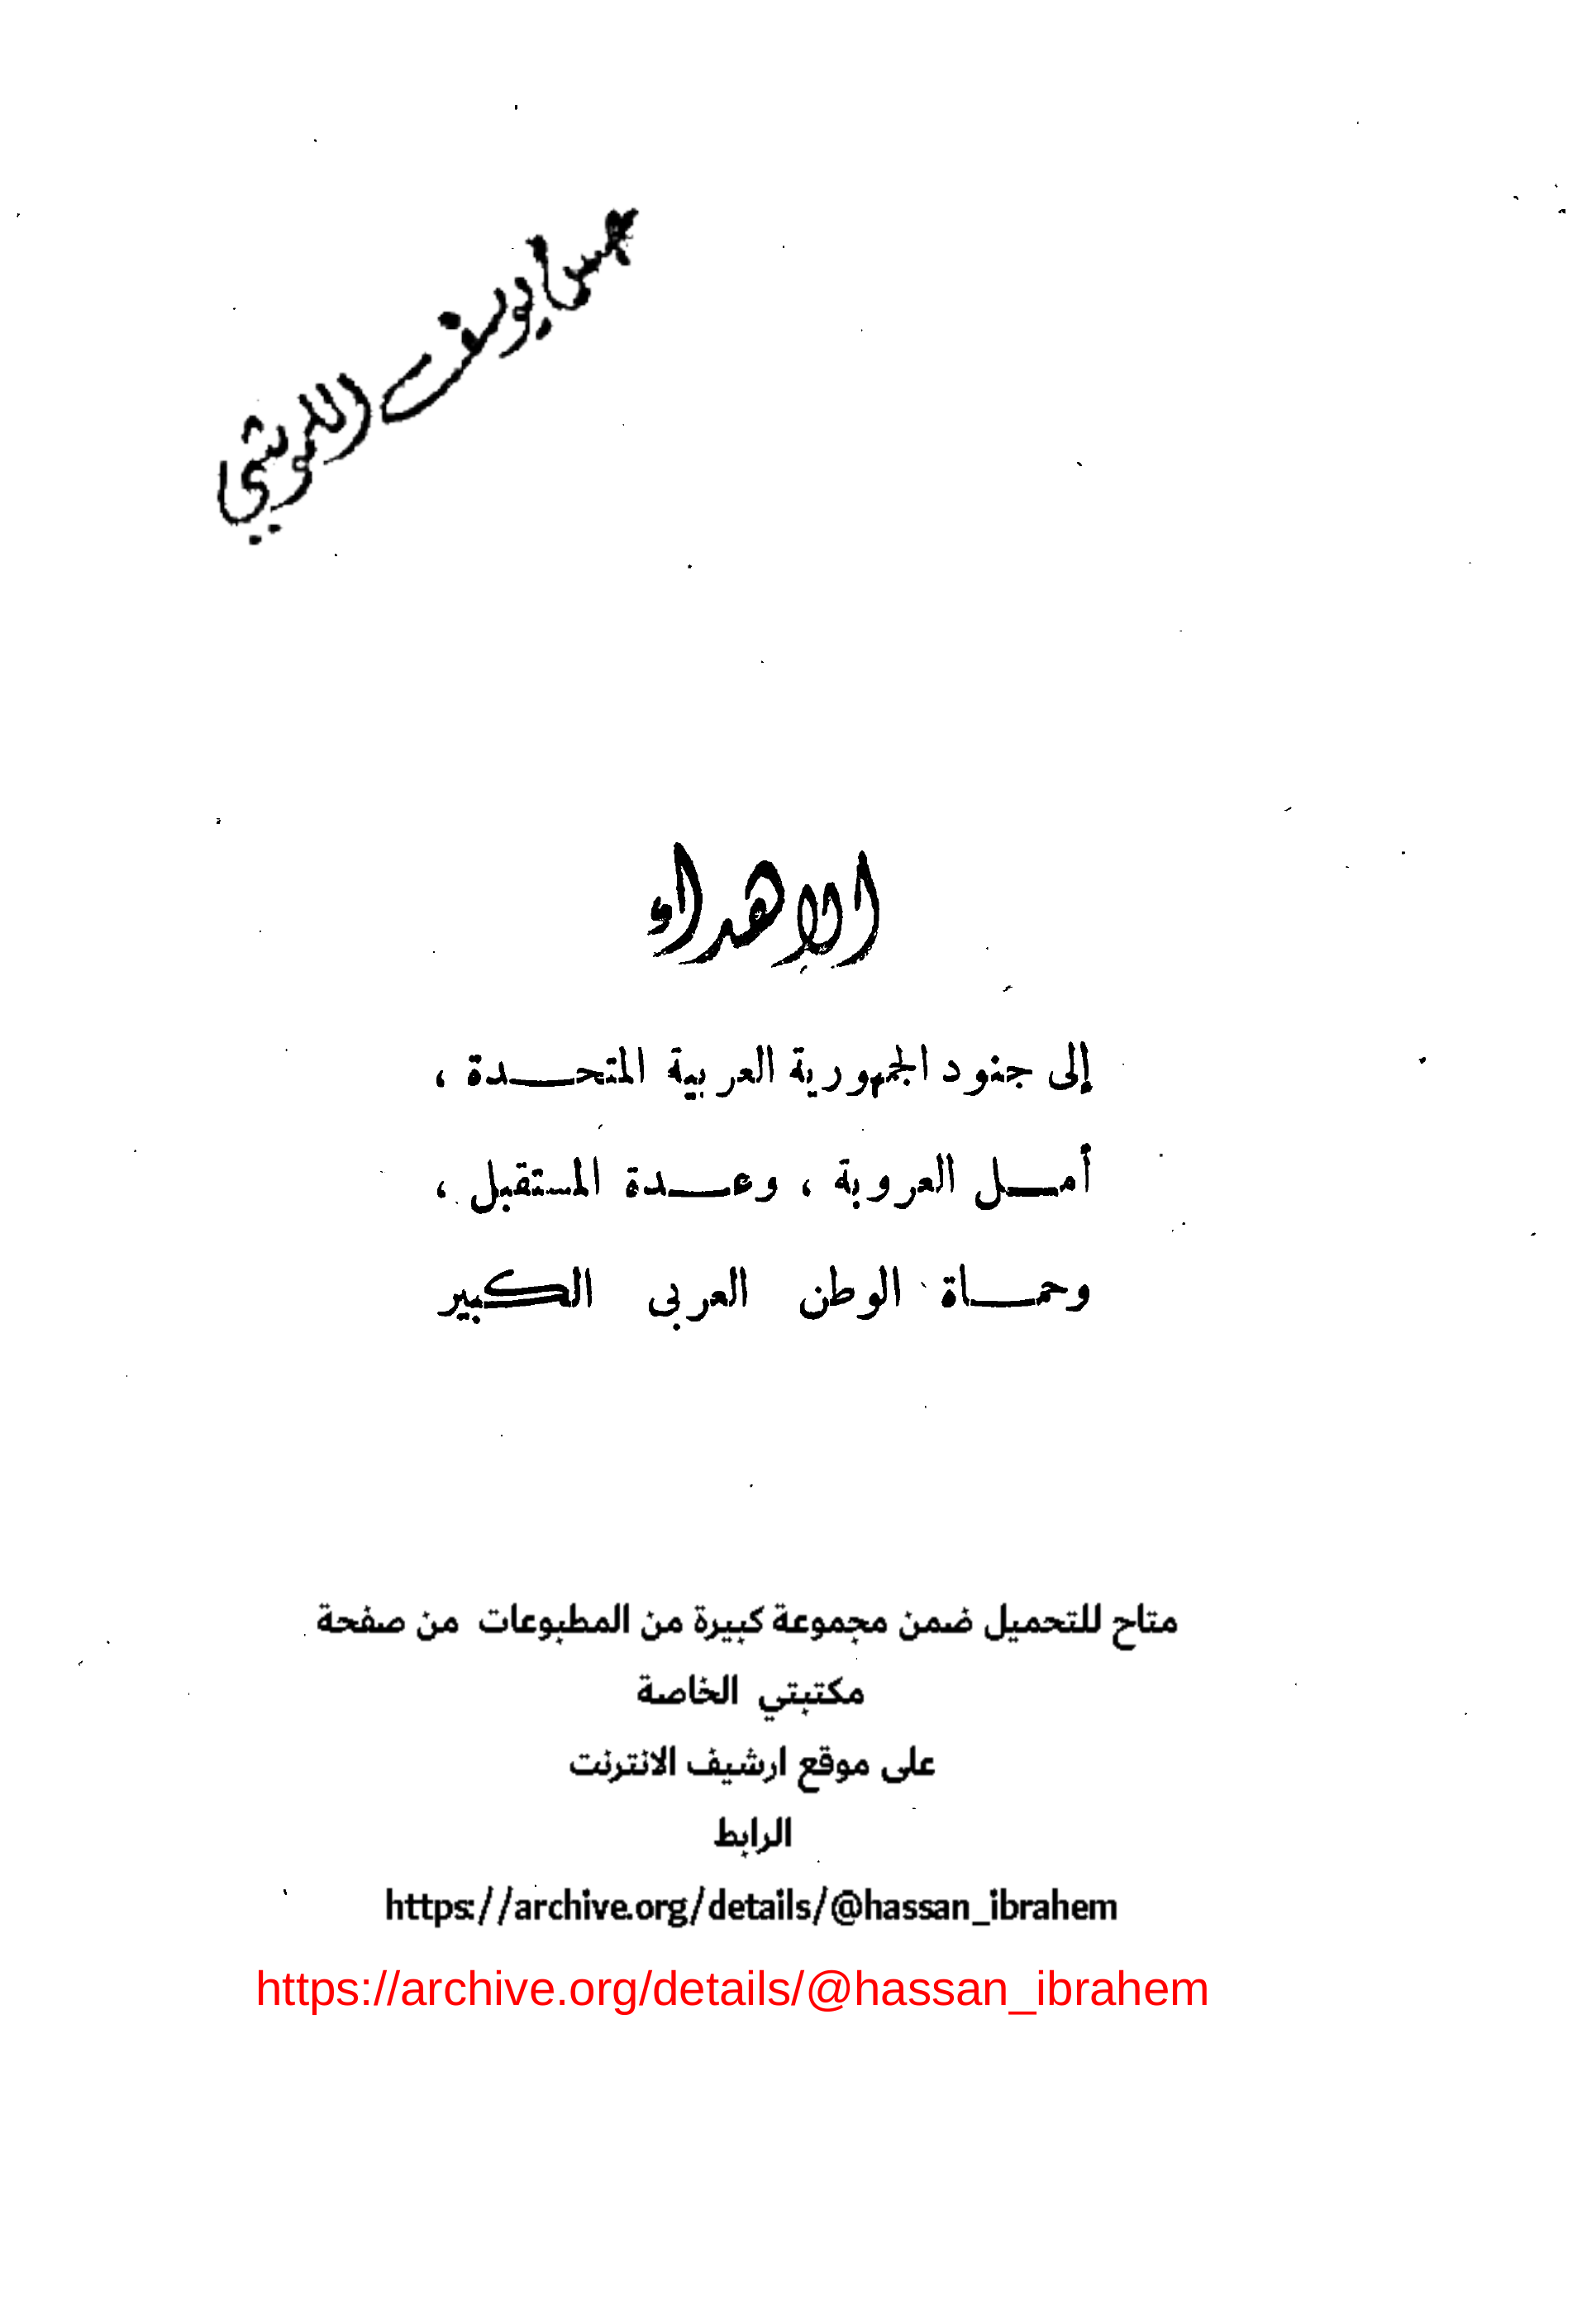 الإهداء
إلى جنود الجمهورية العربية المتحـــدة ،
أمـــل العروبة ، وعـــدة المستقبل ،
وحمـــاة الوطن العربى الكبير
متاح للتحميل ضمن مجموعة كبيرة من المطبوعات من صفحة
مكتبتي الخاصة
على موقع ارشيف الانترنت
الرابط
https://archive.org/details/@hassan_ibrahem
https://archive.org/details/@hassan_ibrahem